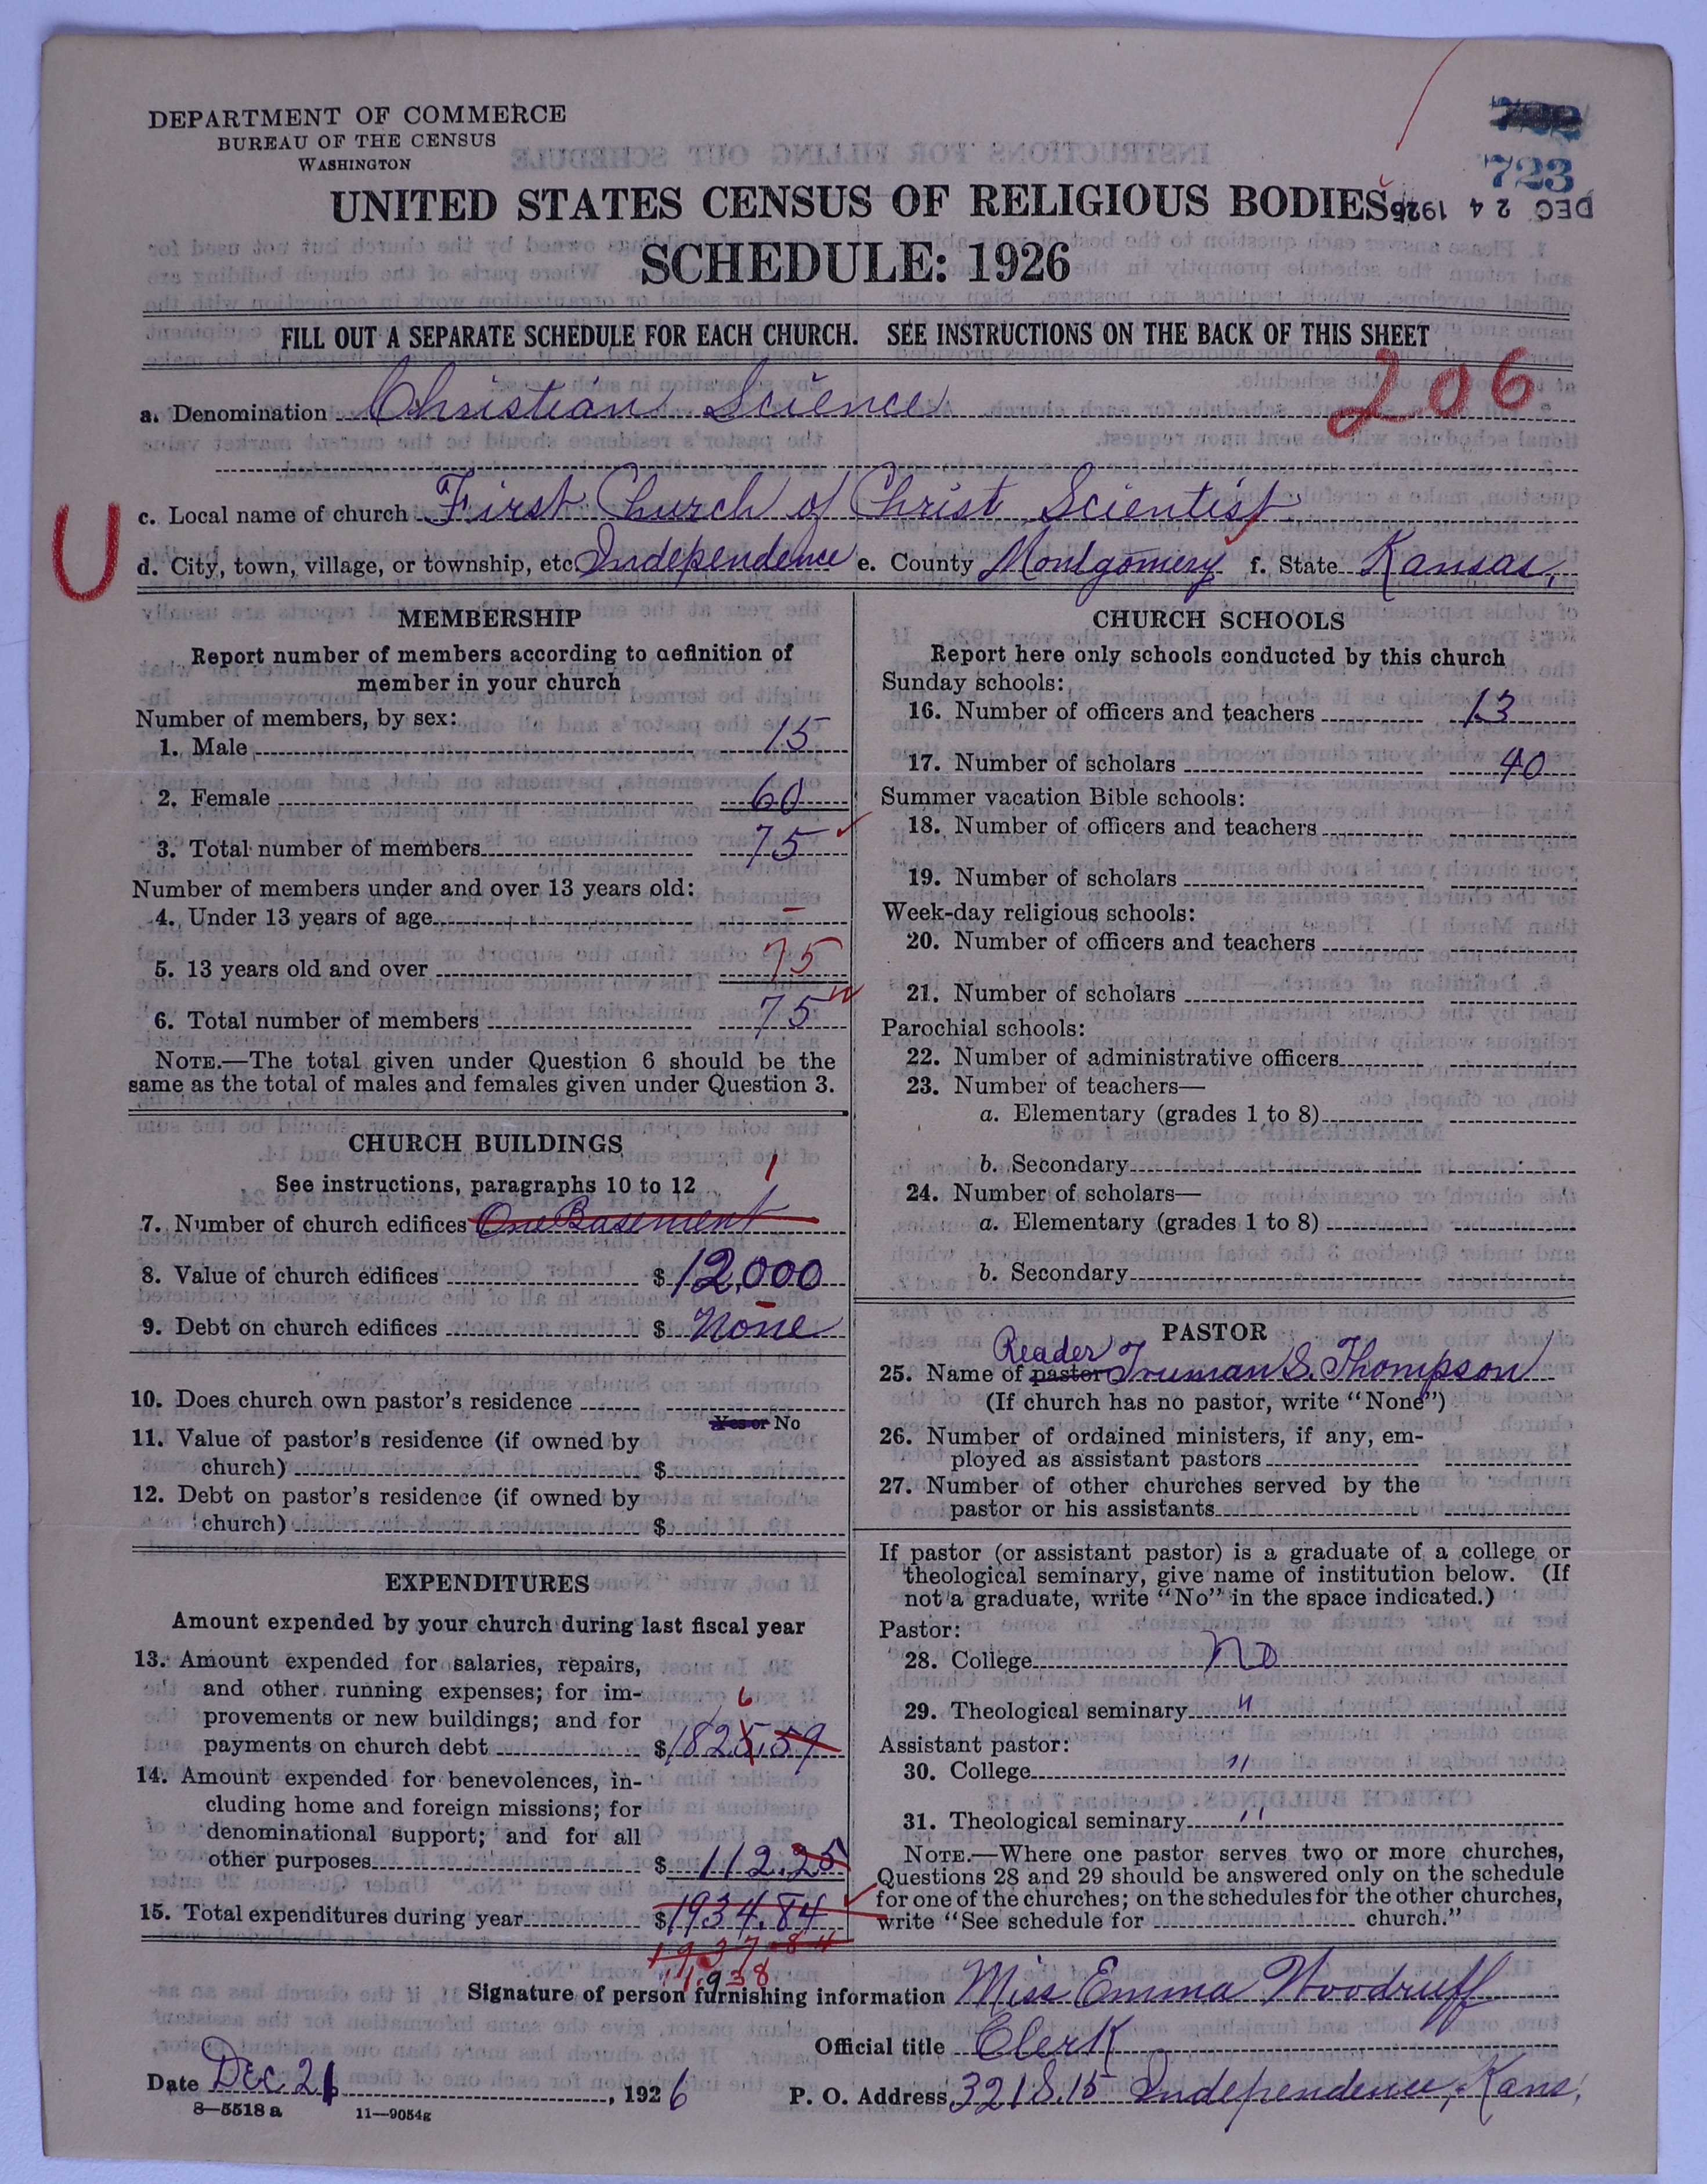 DEPARTMENT OF COMMERCE
BUREAU OF THE CENSUS
WASHINGTON
723
UNITED STATES CENSUS OF RELIGIOUS BODIES
DEC 24 1926
SCHEDULE: 1926
FILL OUT A SEPARATE SCHEDULE FOR EACH CHURCH. SEE INSTRUCTIONS ON THE BACK OF THIS SHEET
206
a. Denomination Christian Science
U
c. Local name of church First Church of Christ Scientist
d. City, town, village, or township, etc Independence e. County Montgomery f. State Kansas.
MEMBERSHIP
Report number of members according to definition of
member in your church
Number of members, by sex:
1. Male 15
2. Female 60
3. Total number of members 75
Number of members under and over 13 years old:
4. Under 13 years of age –
5. 13 years old and over 75
6. Total number of members 75
NOTE.—The total given under Question 6 should be the
same as the total of males and females given under Question 3.
CHURCH BUILDINGS
See instructions, paragraphs 10 to 12
1
7. Number of church edifices One Basement
8. Value of church edifices $ 12,000
9. Debt on church edifices $ None
10. Does church own pastor's residence
Yes or No
11. Value of pastor's residence (if owned by
church) $
12. Debt on pastor's residence (if owned by
church) $
EXPENDITURES
Amount expended by your church during last fiscal year
13. Amount expended for salaries, repairs,
and other running expenses; for im-
provements or new buildings; and for
6
payments on church debt $ 1825.59
14. Amount expended for benevolences, in-
cluding home and foreign missions; for
denominational support; and for all
other purposes $ 112.25
15. Total expenditures during year $ 1934.84
1937 84
1,938
CHURCH SCHOOLS
Report here only schools conducted by this church
Sunday schools:
16. Number of officers and teachers 13
17. Number of scholars 40
Summer vacation Bible schools:
18. Number of officers and teachers
19. Number of scholars
Week-day religious schools:
20. Number of officers and teachers
21. Number of scholars
Parochial schools:
22. Number of administrative officers
23. Number of teachers—
a. Elementary (grades 1 to 8)
b. Secondary
24. Number of scholars—
a. Elementary (grades 1 to 8)
b. Secondary
PASTOR
Reader
25. Name of pastor Truman S. Thompson
(If church has no pastor, write "None")
26. Number of ordained ministers, if any, em-
ployed as assistant pastors
27. Number of other churches served by the
pastor or his assistants
If pastor (or assistant pastor) is a graduate of a college or
theological seminary, give name of institution below. (If
not a graduate, write "No" in the space indicated.)
Pastor:
28. College No
29. Theological seminary "
Assistant pastor:
30. College "
31. Theological seminary "
NOTE.—Where one pastor serves two or more churches,
Questions 28 and 29 should be answered only on the schedule
for one of the churches; on the schedules for the other churches,
write "See schedule for church."
Signature of person furnishing information Miss Emma Woodruff
Official title Clerk
Date Dec 21, 1926 P. O. Address 321 S. 15 Independence, Kans.
8—5518 a 11—9054g